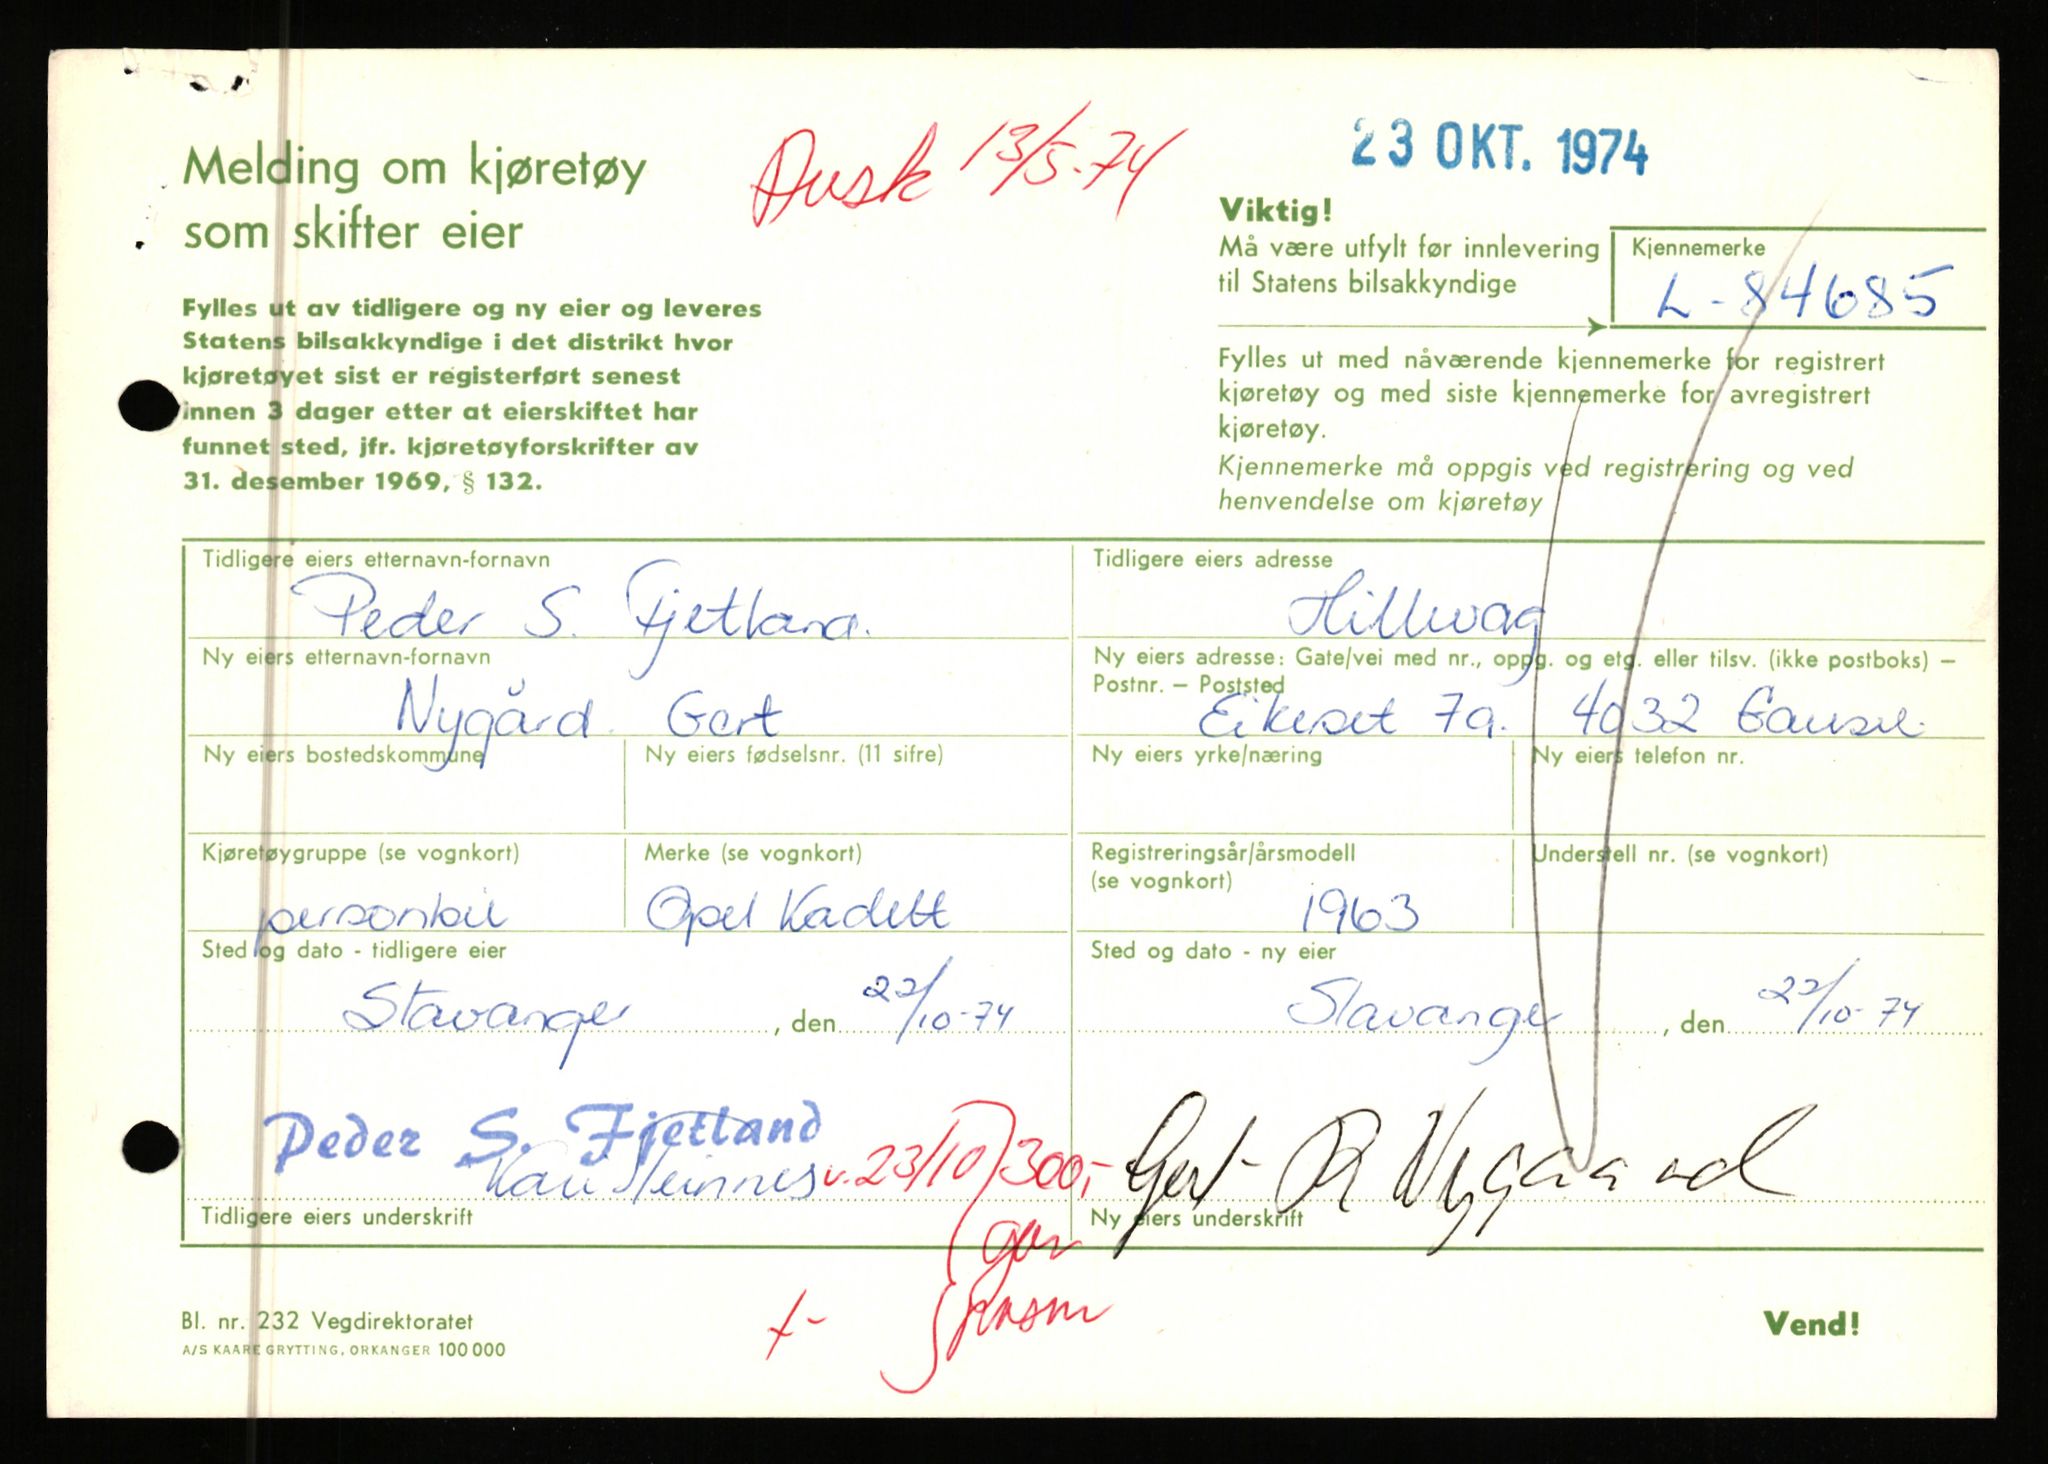 23 OKT. 1974
Avsk 13/5-74
Melding om kjøretøy
som skifter eier
Fylles ut av tidligere og ny eier og leveres
Statens bilsakkyndige i det distrikt hvor
kjøretøyet sist er registerført senest
innen 3 dager etter at eierskiftet har
funnet sted, jfr. kjøretøyforskrifter av
31. desember 1969, § 132.
Viktig!
Må være utfylt før innlevering
til Statens bilsakkyndige
Kjennemerke
L-84685
Fylles ut med nåværende kjennemerke for registrert
kjøretøy og med siste kjennemerke for avregistrert
kjøretøy.
Kjennemerke må oppgis ved registrering og ved
henvendelse om kjøretøy
Tidligere eiers etternavn-fornavn
Peder S. Fjetland.
Tidligere eiers adresse
Hillevåg
Ny eiers etternavn-fornavn
Nygård Gert
Ny eiers adresse: Gate/vei med nr., oppg. og etg. eller tilsv. (ikke postboks) –
Postnr. – Poststed
Eikeset 7a. 4032 Gausel
Ny eiers bostedskommune
Ny eiers fødselsnr. (11 sifre)
Ny eiers yrke/næring
Ny eiers telefon nr.
Kjøretøygruppe (se vognkort)
personbil
Merke (se vognkort)
Opel Kadett
Registreringsår/årsmodell
(se vognkort)
1963
Understell nr. (se vognkort)
Sted og dato - tidligere eier
Stavanger, den 22/10-74
Sted og dato - ny eier
Stavanger, den 22/10-74
Peder S. Fjetland
Kari v. 23/10 300,-
Gert R Nygaard
Tidligere eiers underskrift
Ny eiers underskrift
Bl. nr. 232 Vegdirektoratet
A/S KAARE GRYTTING, ORKANGER 100 000
Vend!